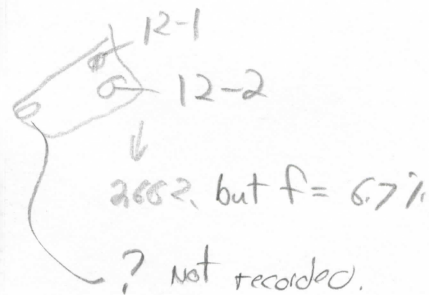 12-1
12-2
2662, but f= 6.7%
? Not recorded.